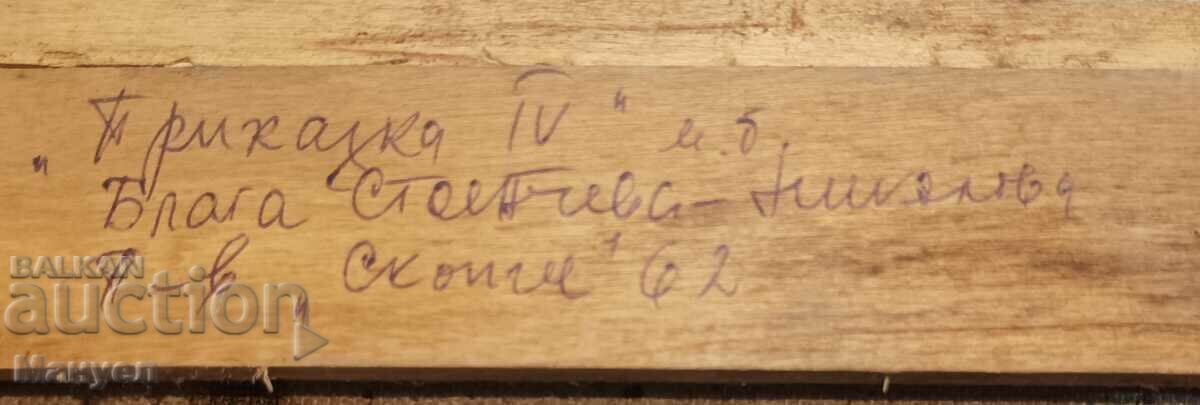 „Приказка IV" м.б.
Блага Стоичева-Николова
П-в „Скопие" 62
BALKAN
auction
Мануел